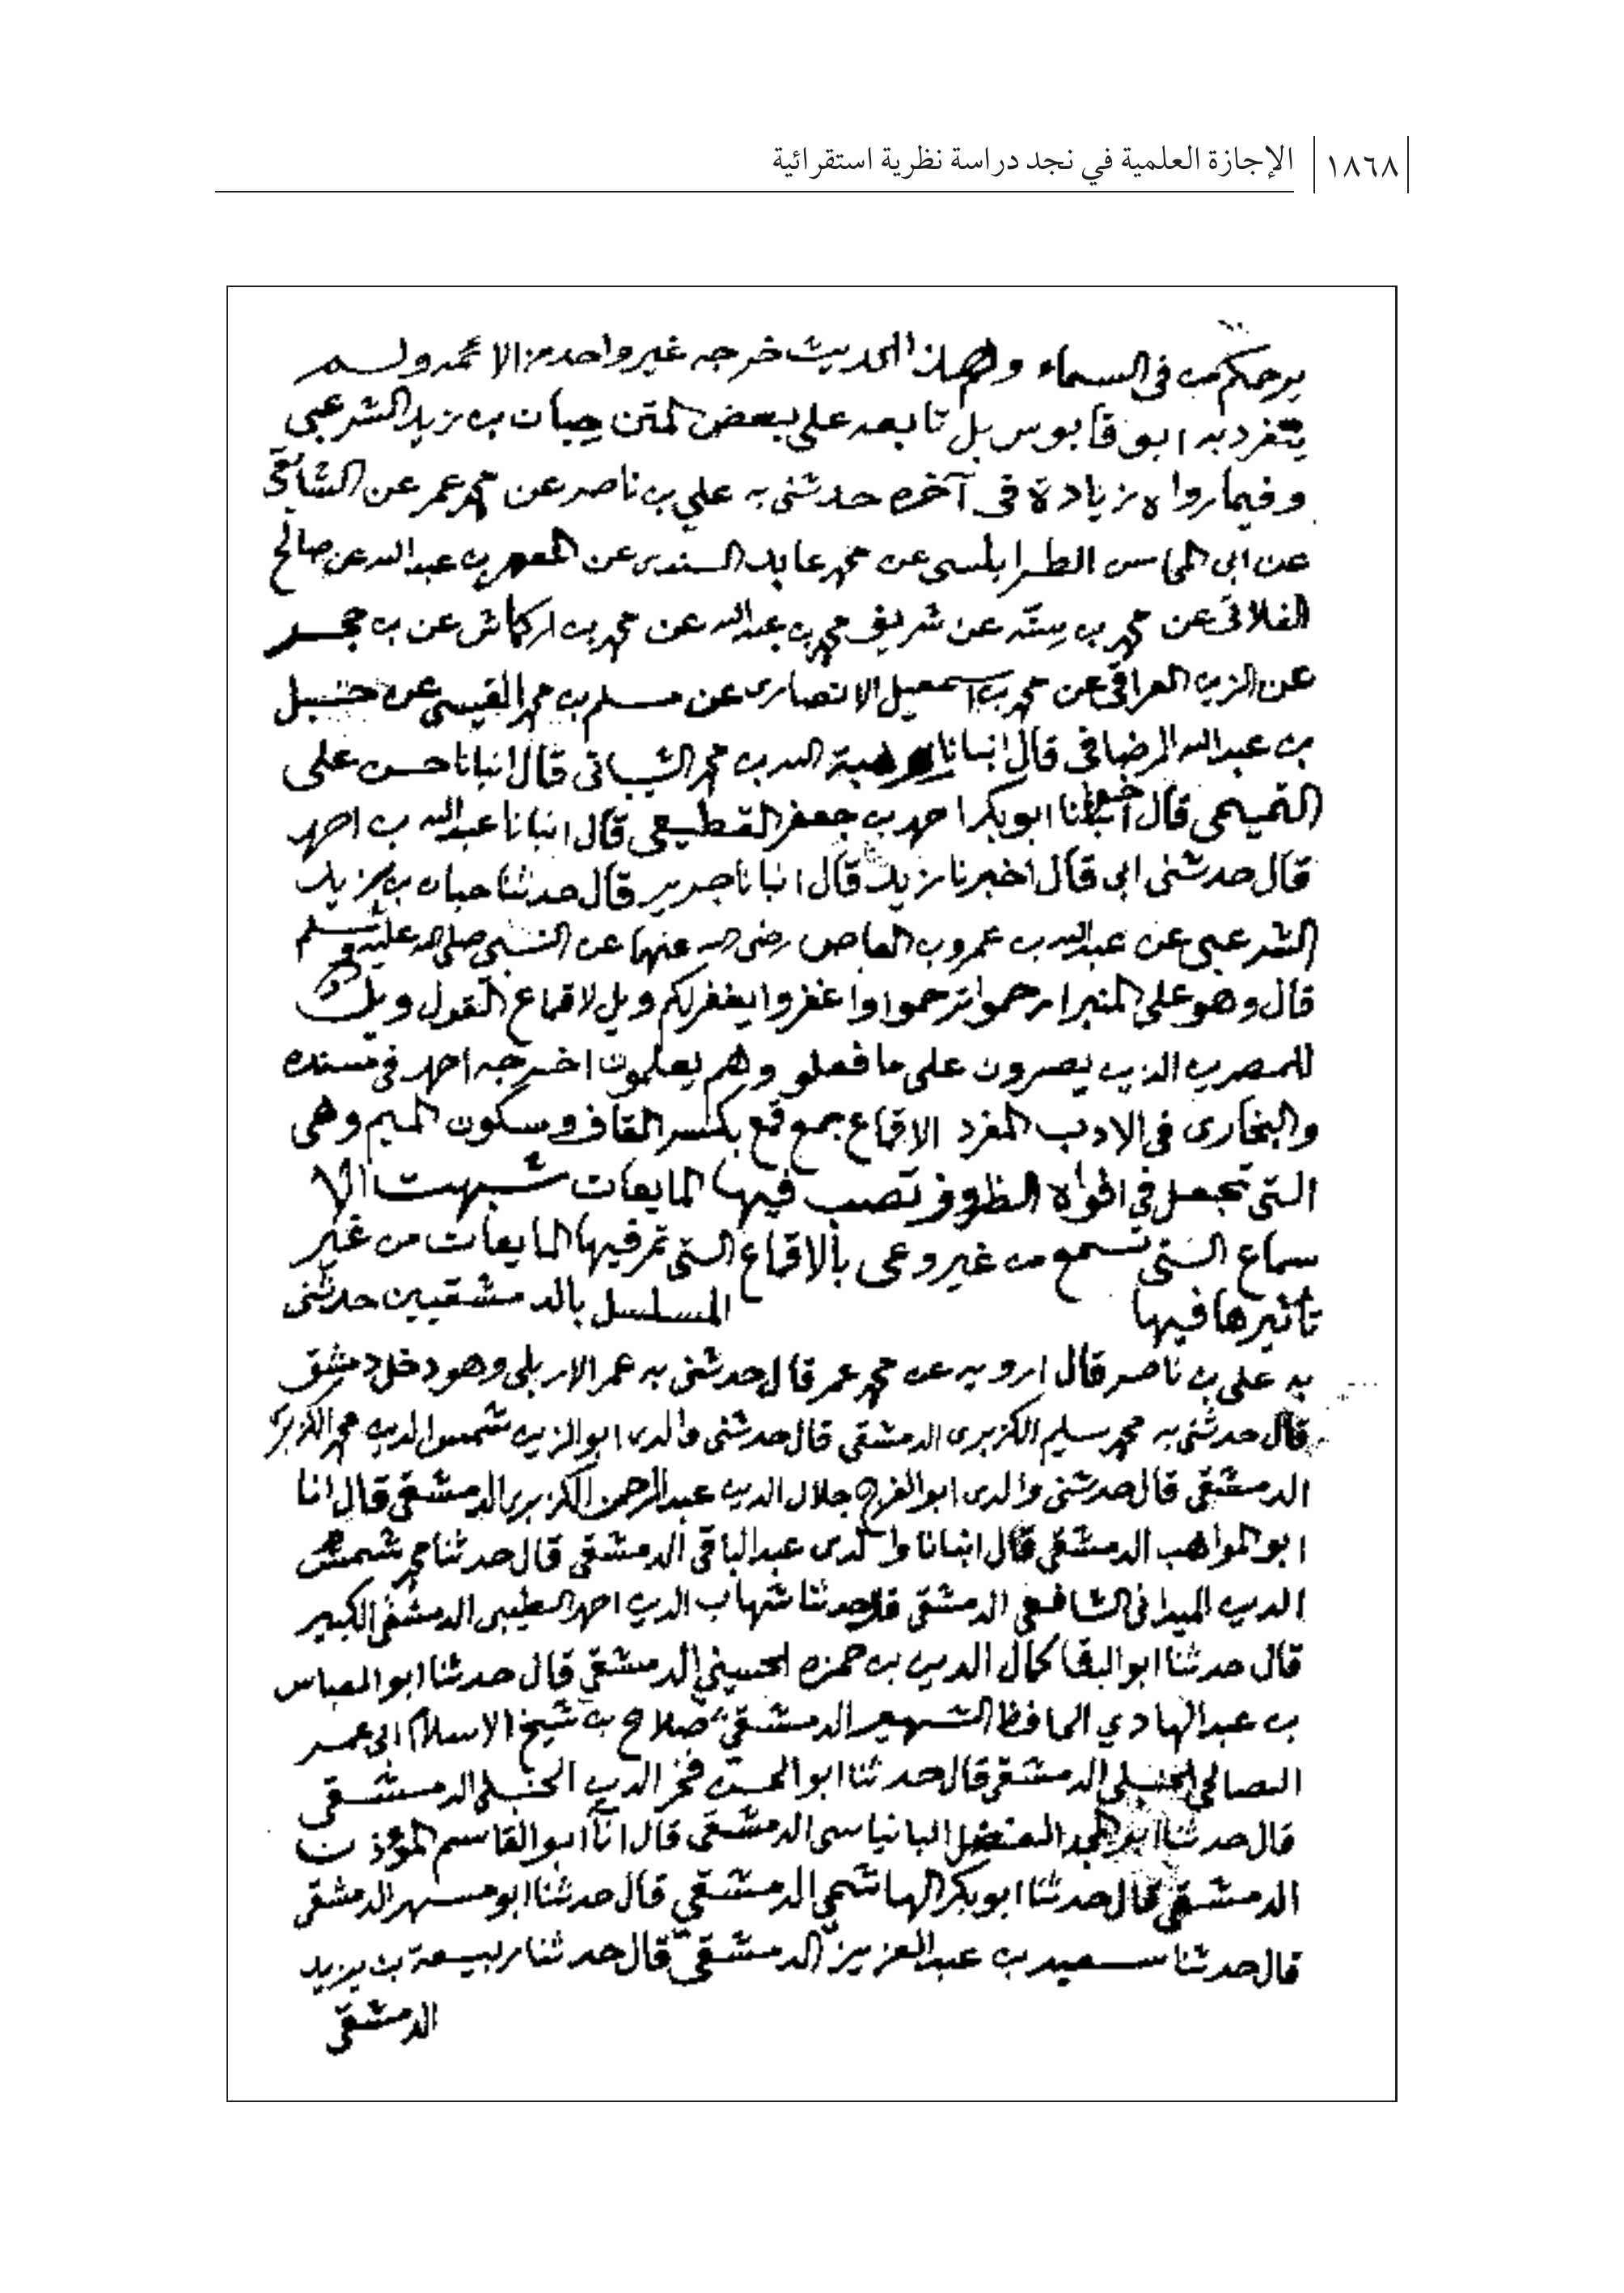 ١٨٦٨ الإجازة العلمية في نجد دراسة نظرية استقرائية
يرحمكم من في السماء وهذا الحديث خرجه غير واحد من الائمه ولم
يتفرد به ابو قابوس بل تابعه على بعض المتن حبان بن يزيد الشرعبي
وفيما رواه زيادة في آخره حدثني به علي بن ناصر عن محمد عمر عن
عن ابي المحاسن الطرابلسي عن محمد عابد السندي عن المعمر بن عبد الله عن صالح
الفلاني عن محمد بن سنة عن شريف محمد بن عبد الله عن محمد بن اركماش عن بن حجر
عن الزين العراقي عن محمد بن اسمعيل الانصارى عن مسلم بن محمد القيسي عن حنبل
بن عبد الله الرضافي قال انبانا هبة الله بن محمد الشيباني قال انبانا حسن علي
التميمي قال ابو بكر احمد بن جعفر القطيعي قال انبانا عبد الله بن احمد
قال حدثني ابي قال اخبرنا يزيد قال انبانا جرير قال حدثنا حبان بن يزيد
الشرعبي عن عبد الله بن عمرو بن العاص رضي الله عنهما عن النبي صلى الله عليه وسلم
قال وهو على المنبر ارحموا ترحموا واغفروا يغفر لكم ويل لاقماع القول ويل
للمصرين الذين يصرون على ما فعلو وهم يعلمون اخرجه احمد في مسنده
والبخارى في الادب المفرد الاقماع جمع قمع بكسر القاف وسكون الميم وهى
التى تجعل في افواه الظروف تصب فيها المايعات شبهت
سماع التى تسمع من غير وعى بالاقماع التى تمر فيها المايعات من غير
تأثيرها فيها المسلسل بالدمشقيين حدثني
به علي بن ناصر قال ارويه عن محمد عمر قال حدثني به عمر الاربلي وهو دخل دمشق
قال حدثني به محمد سليم الكزبرى الدمشقي قال حدثني والدى ابو الزين شمس الدين محمد الكزبرى
الدمشقي قال حدثني والدى ابو الفرج جلال الدين عبد الرحمن الكزبرى الدمشقي قال انا
ابو المواهب الدمشقي قال انبانا والدى عبد الباقي الدمشقي قال حدثنا محمد شمس
الدين الميداني الشافعي الدمشقي قال حدثنا شهاب الدين احمد الطيبي الدمشقي الكبير
قال حدثنا ابو البقا كمال الدين بن حمزه الحسيني الدمشقي قال حدثنا ابو العباس
بن عبد الهادي الحافظ الشهير الدمشقي صلاح بن شيخ الاسلام ابى عمر
الصالحي الحنبلي الدمشقي قال حدثنا ابو الحسن فخر الدين الحنبلي الدمشقي
قال حدثنا ابو المجد الفضل البانياسى الدمشقي قال انا ابو القاسم المؤذن
الدمشقي قال حدثنا ابو بكر الهاشمي الدمشقي قال حدثنا ابو مسهر الدمشقي
قال حدثنا سعيد بن عبد العزيز الدمشقي قال حدثنا ربيعة بن يزيد
الدمشقي